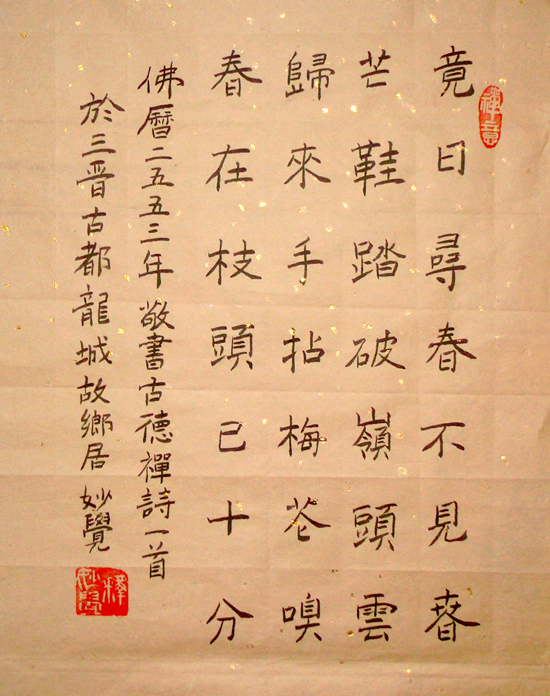 禪意
竟日尋春不見春
芒鞋踏破嶺頭雲
歸來手拈梅花嗅
春在枝頭已十分
佛曆二五五三年敬書古德禪詩一首
於三晉古都龍城故鄉居妙覺
釋妙覺